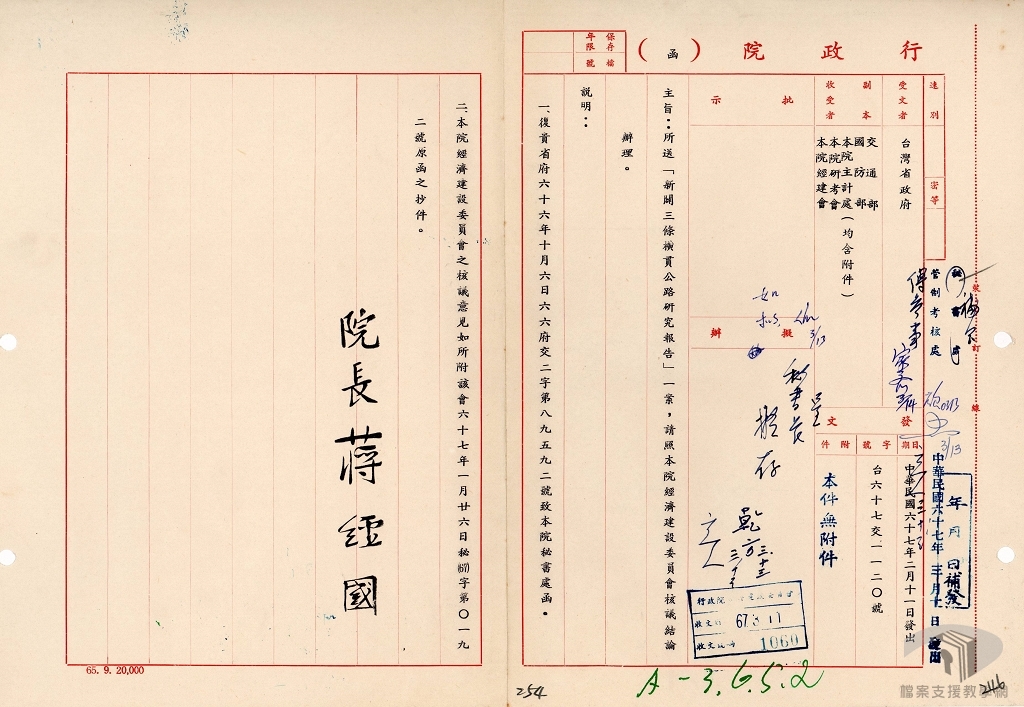 行政院（函）
保存年限
檔號
速別
密等
受文者
台灣省政府
副本收受者
交通部
國防部
本院主計處
本院研考會
本院經建會
（均含附件）
批示
擬辦
發文
日期
字號
附件
中華民國六十七年二月十一日發出
台六十七交一一二〇號
本件無附件
年 月 日補發
管制考核處
裝 訂 線
如擬
3/13
秘書長
呈
擬存
三.十三
行政院
收文
67.3.11
1060
主旨：所送「新闢三條橫貫公路研究報告」一案，請照本院經濟建設委員會核議結論
辦理。
説明：
一、復貴省府六十六年十月六日六六府交二字第八九五九二號致本院秘書處函。
二、本院經濟建設委員會之核議意見如所附該會六十七年一月廿六日秘(67)字第〇一九
二號原函之抄件。
院長蔣經國
65. 9. 20,000
254
A-3.6.5.2
246
檔案支援教學網